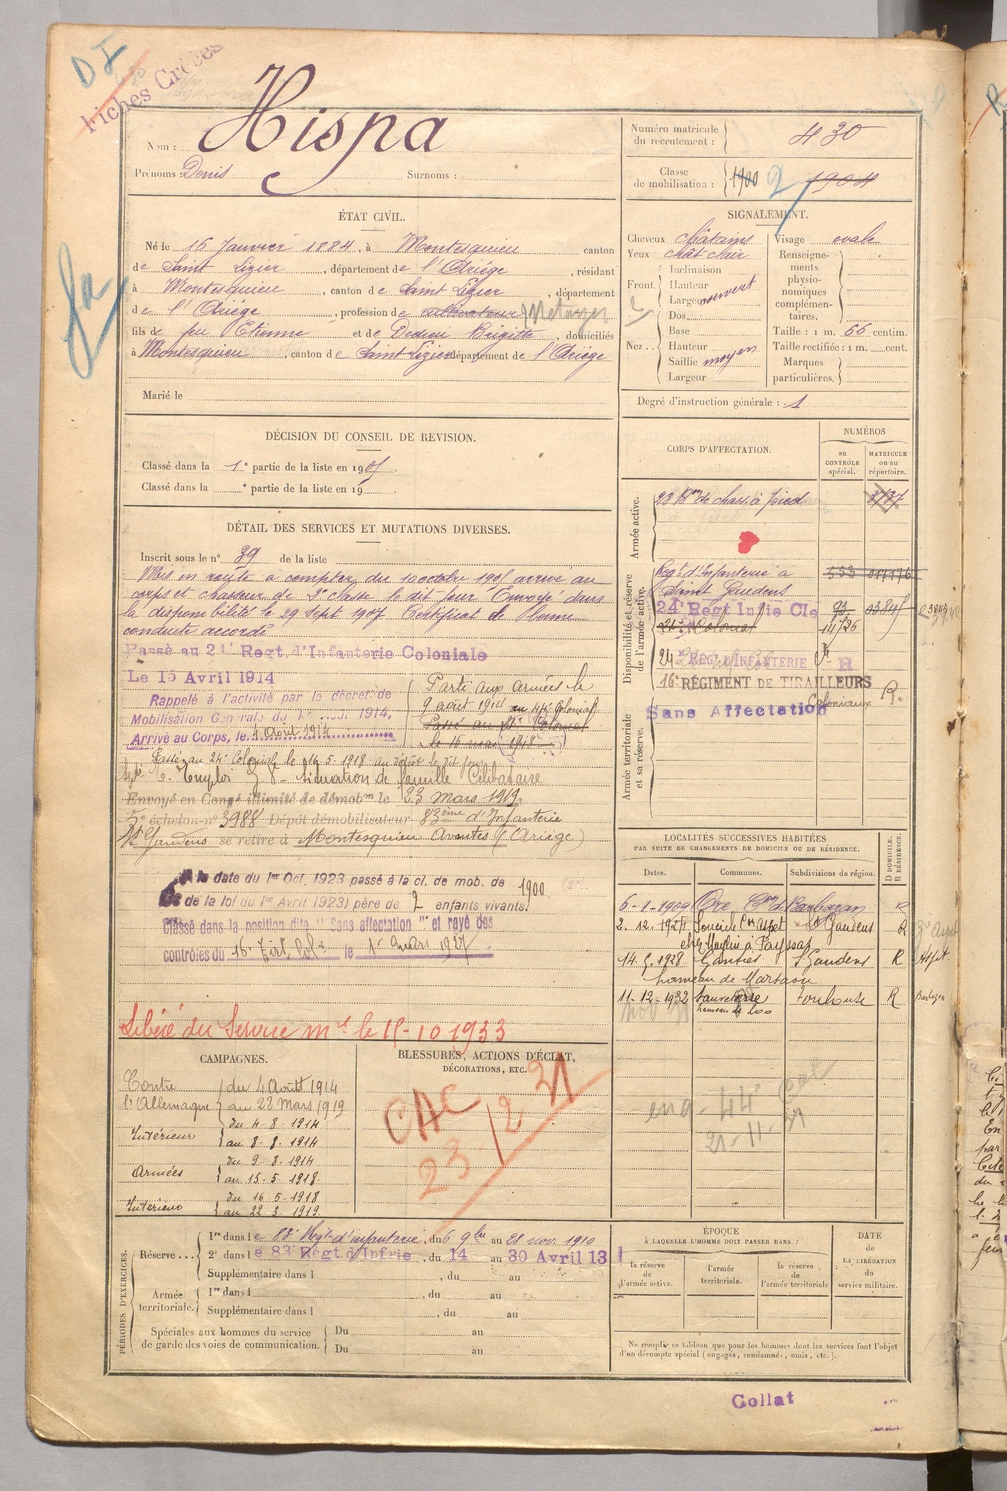 DI
Fiches Créées
Nom : Hispa
Prénoms : Denis Surnoms :
Numéro matricule du recrutement : 430
Classe de mobilisation : 1900 2 1904
ÉTAT CIVIL.
Né le 16 Janvier 1884, à Montesquieu canton
de Saint Lizier, département de l'Ariège, résidant
à Montesquieu, canton de Saint Lizier, département
de l'Ariège, profession de cultivateur Métayer
fils de feu Etienne et de Dedieu Brigitte domiciliés
à Montesquieu, canton de Saint Lizier département de l'Ariège
Marié le
SIGNALEMENT.
Cheveux châtains
Yeux chât clair
Front. Inclinaison
Hauteur
Largeur couvert
Nez.. Dos
Base
Hauteur
Saillie moyen
Largeur
Visage ovale
Renseignements physionomiques complémentaires.
Taille : 1 m. 66 centim.
Taille rectifiée : 1 m. cent.
Marques particulières.
Degré d'instruction générale : 1
DÉCISION DU CONSEIL DE REVISION.
Classé dans la 1e partie de la liste en 1905.
Classé dans la e partie de la liste en 19
DÉTAIL DES SERVICES ET MUTATIONS DIVERSES.
Inscrit sous le n° 39 de la liste
Mis en route à compter du 10 octobre 1905 arrivé au
corps et chasseur de 2e classe le dit jour Envoyé dans
la disponibilité le 29 Sept 1907 Certificat de bonne
conduite accordé
Passé au 24e Regt. d'Infanterie Coloniale
Le 15 Avril 1914
Rappelé à l'activité par le décret de
Mobilisation Générale du 1er Août 1914,
Arrivé au Corps, le 4 Août 1914
Parti aux armées le
9 août 1914 au 44e Colonial
Passé au 21e Colonial
le 16 mai 1918
Passé au 24e Colonial le 16.5.1918 au dépôt le dit jour
situation de famille Célibataire
Envoyé en Congé illimité de démobm le 23 mars 1919
échelon-n° 3988 Dépôt démobilisateur 83ème d'Infanterie
St Gaudens se retire à Montesquieu Avantès (Ariège)
A la date du 1er Oct. 1923 passé à la cl. de mob. de 1900
de la loi du 1er Avril 1923) père de 2 enfants vivants.
Classé dans la position dite "Sans affectation" et rayé des
contrôles du 16e Tirt. Colx le 1er mars 1927
Libéré du Service mre le 15-10 1933
CORPS D'AFFECTATION.
NUMÉROS
au CONTRÔLE spécial.
MATRICULE ou au répertoire.
Armée active.
23 Bon de chass. à pied 3737
Disponibilité et réserve de l'armée active.
Regt d'Infanterie à
Saint Gaudens
24e Regt Infie Cle
21e Colonial
24e REGT D'INFANTERIE
16e RÉGIMENT DE TIRAILLEURS
Coloniaux
Sans Affectation
Armée territoriale et sa réserve.
LOCALITÉS SUCCESSIVES HABITÉES
PAR SUITE DE CHANGEMENTS DE DOMICILE OU DE RÉSIDENCE.
Dates. Communes. Subdivisions de région. D DOMICILE. R RÉSIDENCE.
6-1-1909 Ore Con de Barbazan R
2.12.1924 Soueich Con Aspet St Gaudens R
14.5.1928 Ganties St Gaudens R Aspet
hameau de
11-12-1932 Sauveterre Toulouse R Barbazan
eng- 44e Col
21-11-31
CAMPAGNES.
Contre l'Allemagne du 4 Août 1914
au 22 Mars 1919
Intérieur du 4.8.1914
au 8.8.1914
Armées du 9.8.1914
au 15.5.1918.
Intérieur du 16.5.1918
au 22.3.1919.
BLESSURES, ACTIONS D'ÉCLAT,
DÉCORATIONS, ETC.
CAC
23/12 31
PÉRIODES D'EXERCICES.
Réserve ... 1re dans le 88e Régt d'infanterie, du 6 9bre au 21 nov. 1910
2e dans le 83 Régt. d'Infrie, du 14 au 30 Avril 13
Supplémentaire dans l , du au
Armée territoriale. 1re dans l , du au
Supplémentaire dans l , du au
Spéciales aux hommes du service de garde des voies de communication. Du au
Du au
ÉPOQUE
À LAQUELLE L'HOMME DOIT PASSER DANS :
la réserve de l'armée active.
l'armée territoriale.
la réserve de l'armée territoriale
DATE de la LIBÉRATION du service militaire.
Ne remplir ce tableau que pour les hommes dont les services font l'objet
d'un décompte spécial (engagés, condamnés, omis, etc.).
Collat